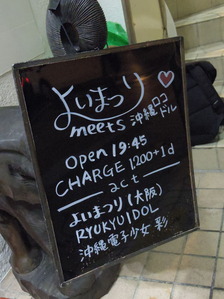 よいまつり
meets 沖縄ロコドル
open 19:45
CHARGE 1200+1d
act
よいまつり(大阪)
RYUKYUIDOL
沖縄電子少女 彩